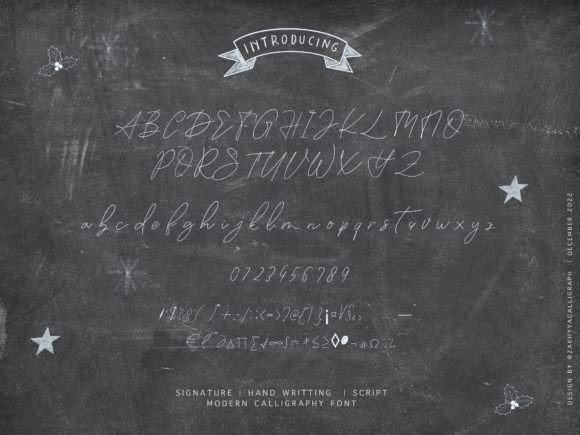 INTRODUCING
ABCDEFGHIJKLMNO
PQRSTUVWXYZ
abcdefghijklmnopqrstuvwxyz
0123456789
SIGNATURE | HAND WRITTING | SCRIPT
MODERN CALLIGRAPHY FONT
DESIGN BY @ZAKHYYACALLIGRAPH | DECEMBER 2022